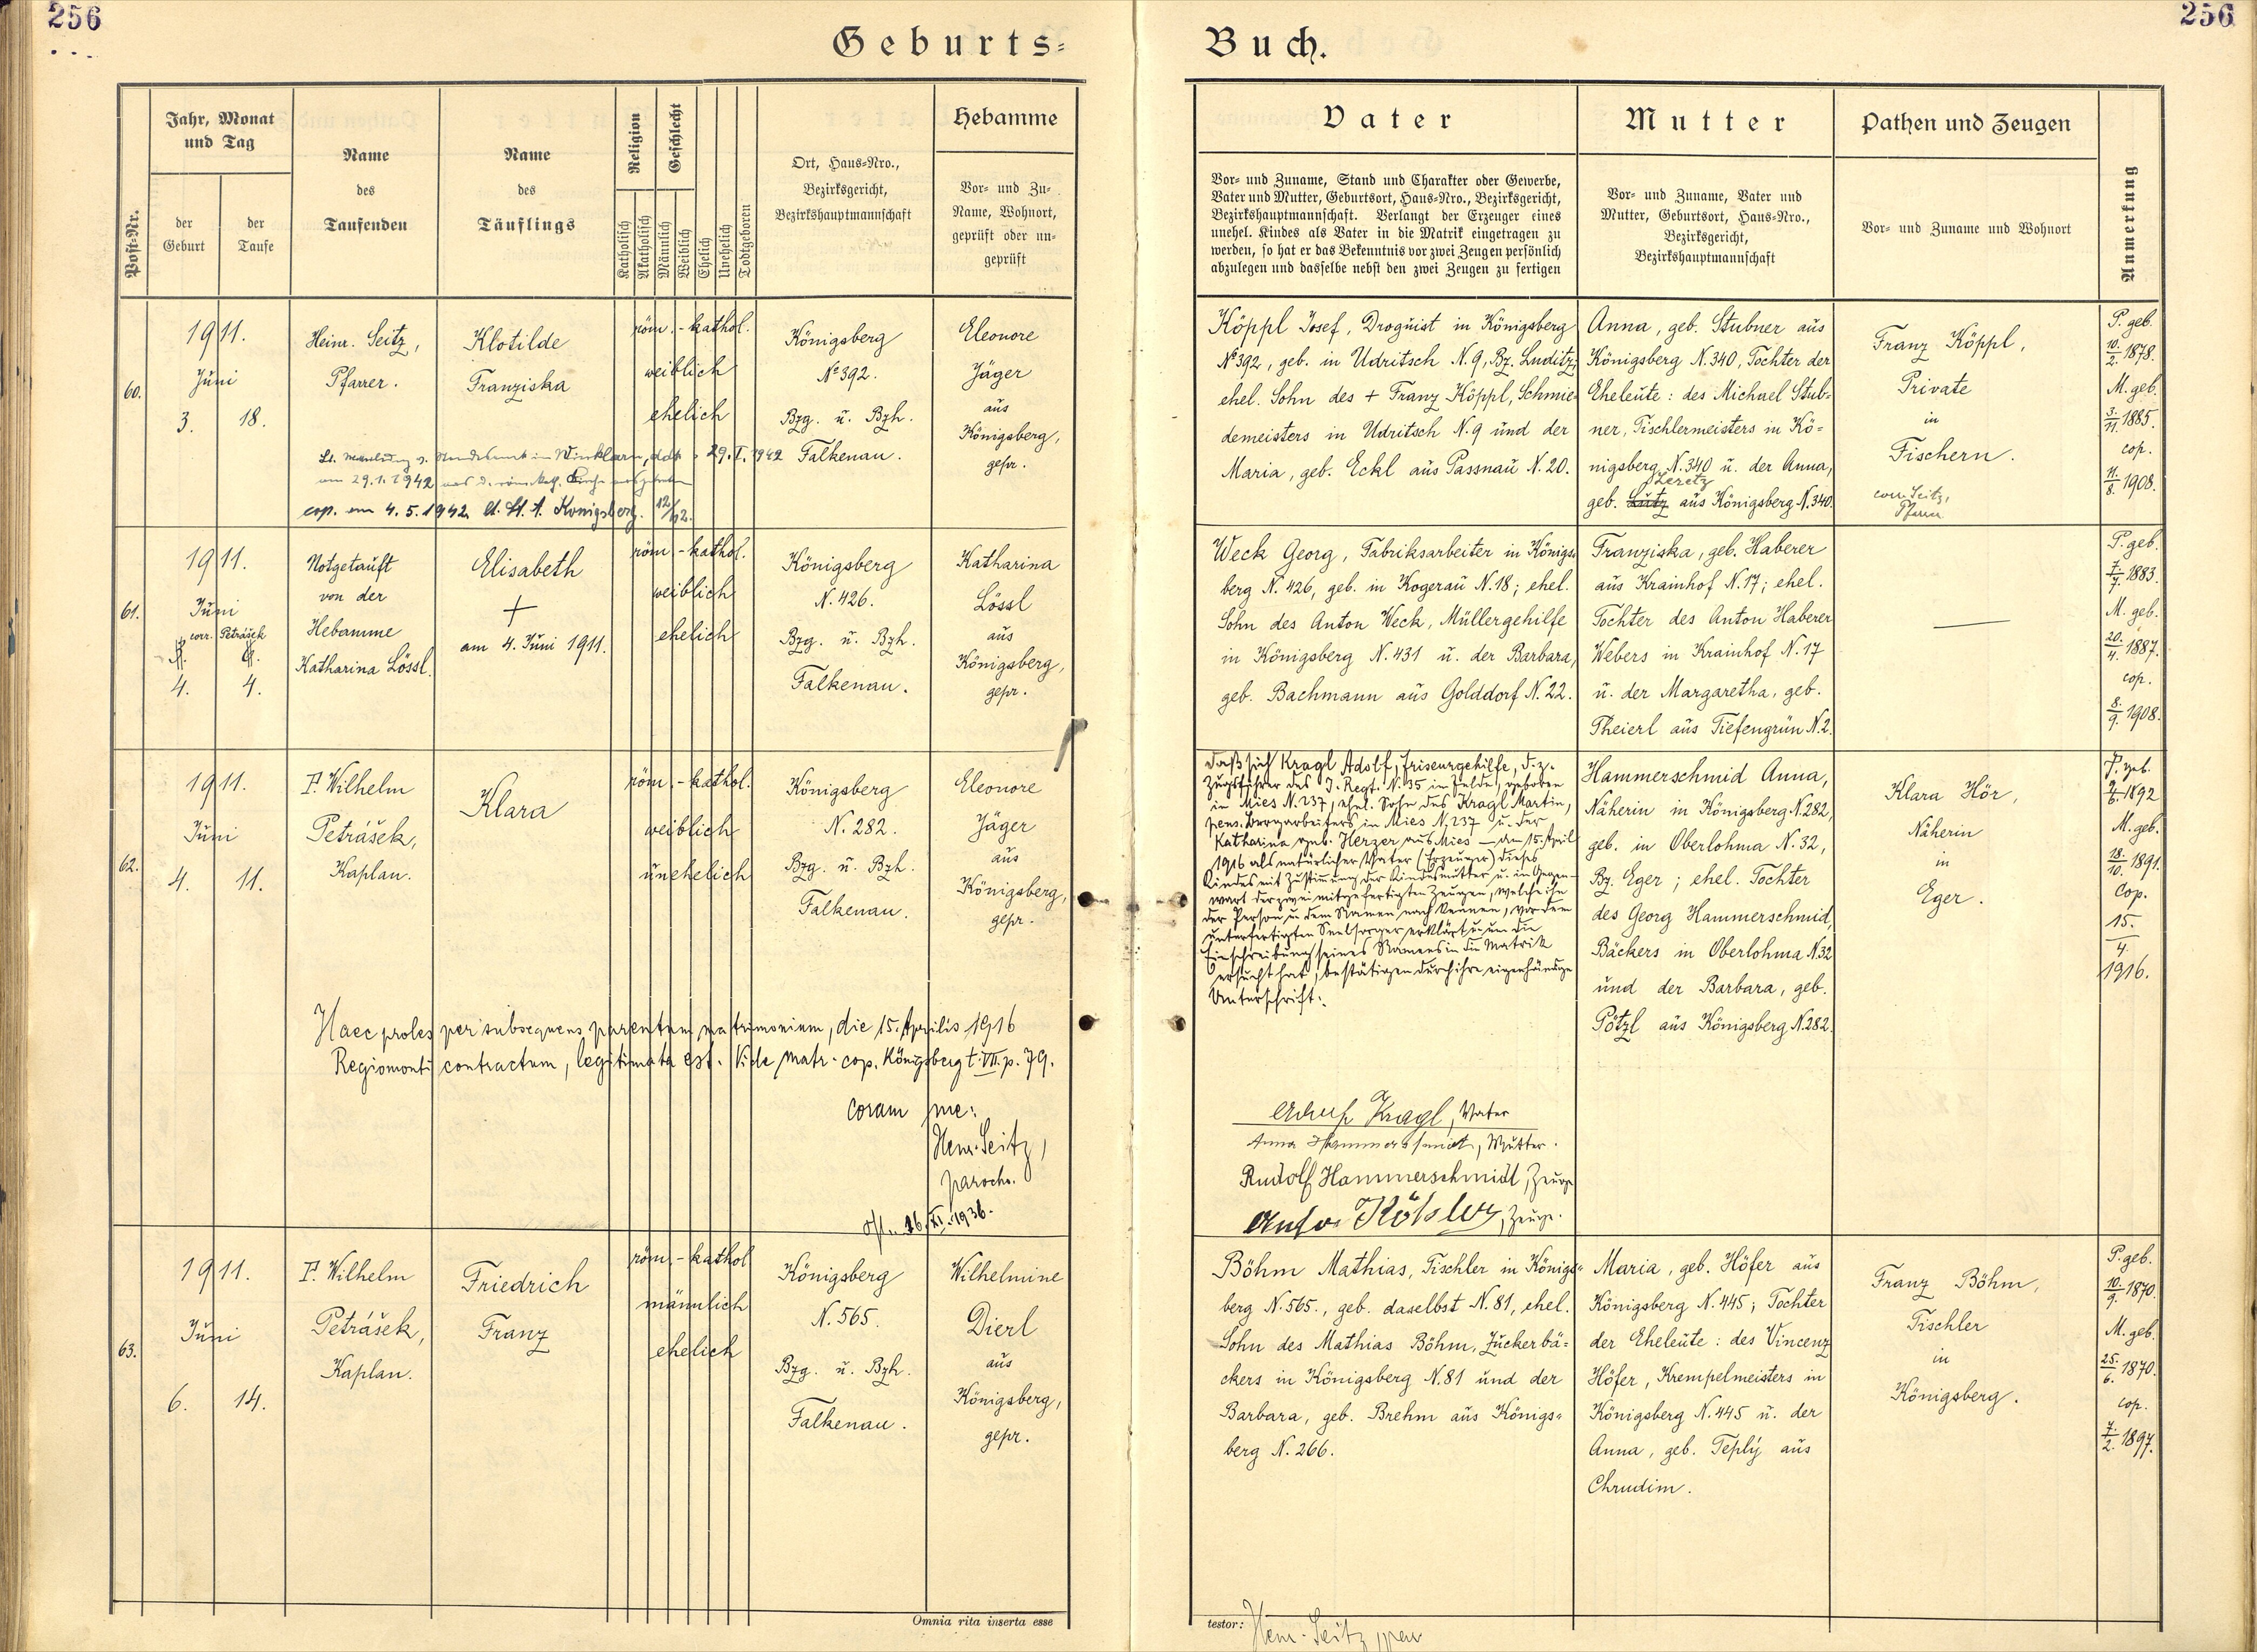 256
256
Geburts=
Buch.
Post-Nr.
Jahr, Monat
und Tag
der
Geburt
der
Taufe
Name
des
Taufenden
Name
des
Täuflings
Religion
Geschlecht
Katholisch
Akatholisch
Männlich
Weiblich
Ehelich
Unehelich
Todtgeboren
Ort, Haus=Nro.,
Bezirksgericht,
Bezirkshauptmannschaft
Hebamme
Vor= und Zu=
Name, Wohnort,
geprüft oder un=
geprüft
Vater
Vor= und Zuname, Stand und Charakter oder Gewerbe,
Vater und Mutter, Geburtsort, Haus=Nro., Bezirksgericht,
Bezirkshauptmannschaft. Verlangt der Erzeuger eines
unehel. Kindes als Vater in die Matrik eingetragen zu
werden, so hat er das Bekenntnis vor zwei Zeugen persönlich
abzulegen und dasselbe nebst den zwei Zeugen zu fertigen
Mutter
Vor= und Zuname, Vater und
Mutter, Geburtsort, Haus=Nro.,
Bezirksgericht,
Bezirkshauptmannschaft
Pathen und Zeugen
Vor= und Zuname und Wohnort
Anmerkung
60.
1911.
Juni
3. 18.
Heinr. Seitz,
Pfarrer.
Klotilde
Franziska
röm.-kathol.
weiblich
ehelich
Königsberg
No 392.
Bzg. u. Bzh.
Falkenau.
Eleonore
Jäger
aus
Königsberg,
gepr.
29. I. 1942
am 29.1.1942
cop. am 4.5.1942 St. A. Königsberg. 12/42.
Köppl Josef, Droguist in Königsberg
No 392, geb. in Udritsch N. 9, Bz. Luditz;
ehel. Sohn des + Franz Köppl, Schmie=
demeisters in Udritsch N. 9 und der
Maria, geb. Eckl aus Passnau N. 20.
Anna, geb. Stubner aus
Königsberg N. 340, Tochter der
Eheleute: des Michael Stub=
ner, Tischlermeisters in Kö=
nigsberg N. 340 u. der Anna,
geb. Lutz aus Königsberg N. 340.
Franz Köppl,
Private
in
Fischern.
corr. Seitz,
Pfarrer
P. geb.
10./2. 1878.
M. geb.
3./11. 1885.
cop.
11./8. 1908.
61.
1911.
Juni
corr. Petrášek
4. 4.
Notgetauft
von der
Hebamme
Katharina Lössl.
Elisabeth
+
am 4. Juni 1911.
röm.-kathol.
weiblich
ehelich
Königsberg
N. 426.
Bzg. u. Bzh.
Falkenau.
Katharina
Lössl
aus
Königsberg,
gepr.
Weck Georg, Fabriksarbeiter in Königs=
berg N. 426, geb. in Kogerau N. 18; ehel.
Sohn des Anton Weck, Müllergehilfe
in Königsberg N. 431 u. der Barbara,
geb. Bachmann aus Golddorf N. 22.
Franziska, geb. Haberer
aus Krainhof N. 17; ehel.
Tochter des Anton Haberer
Webers in Krainhof N. 17
u. der Margaretha, geb.
Theierl aus Tiefengrün N. 2.
P. geb.
7./7. 1883.
M. geb.
20./4. 1887.
cop.
8./9. 1908.
62.
1911.
Juni
4. 11.
P. Wilhelm
Petrášek,
Kaplan.
Klara
röm.-kathol.
weiblich
unehelich
Königsberg
N. 282.
Bzg. u. Bzh.
Falkenau.
Eleonore
Jäger
aus
Königsberg,
gepr.
Haec proles per subsequens parentum matrimonium, die 15. Aprilis 1916
Regiomonti contractum, legitimata est. Vide matr. cop. Königsberg t. VII. p. 79.
coram me:
Henr. Seitz,
paroch.
16. XI. 1936.
daß sich Kragl Adolf, Friseurgehilfe, d. z.
Zugsführer des I. Regt. N. 35 im Felde, geboren
in Mies N. 237, ehel. Sohn des Kragl Martin,
pens. Bergarbeiters in Mies N. 237 u. der
Katharina geb. Herzer aus Mies – am 15. April
1916 als natürlicher Vater (Erzeuger) dieses
Kindes mit Zustimmung der Kindesmutter u. in Gegen=
wart der zwei mitgefertigten Zeugen, welche ihn
der Person u. dem Namen nach kennen, vor dem
unterfertigten Seelsorger erklärt u. um die
Einschreibung seines Namens in die Matrik
ersucht hat, bestätigen durch ihre eigenhändige
Unterschrift:
Adolf Kragl, Vater
Anna Hammerschmidt, Mutter.
Rudolf Hammerschmidt, Zeuge
Anton Kösler, Zeuge.
Hammerschmid Anna,
Näherin in Königsberg N. 282,
geb. in Oberlohma N. 32,
Bz. Eger; ehel. Tochter
des Georg Hammerschmid,
Bäckers in Oberlohma N. 32
und der Barbara, geb.
Pötzl aus Königsberg N. 282.
Klara Hör,
Näherin
in
Eger.
P. geb.
9./6. 1892
M. geb.
18./10. 1891.
Cop.
15.
4.
1916.
63.
1911.
Juni
6. 14.
P. Wilhelm
Petrášek,
Kaplan.
Friedrich
Franz
röm.-kathol
männlich
ehelich
Königsberg
N. 565.
Bzg. u. Bzh.
Falkenau.
Wilhelmine
Dierl
aus
Königsberg,
gepr.
Böhm Mathias, Tischler in Königs=
berg N. 565., geb. daselbst N. 81, ehel.
Sohn des Mathias Böhm, Zuckerbä=
ckers in Königsberg N. 81 und der
Barbara, geb. Brehm aus Königs=
berg N. 266.
Maria, geb. Höfer aus
Königsberg N. 445; Tochter
der Eheleute: des Vincenz
Höfer, Krempelmeisters in
Königsberg N. 445 u. der
Anna, geb. Teplý aus
Chrudim.
Franz Böhm,
Tischler
in
Königsberg.
P. geb.
10./9. 1870.
M. geb.
25./6. 1870.
cop.
7./2. 1897.
Omnia rita inserta esse
testor: Henr. Seitz